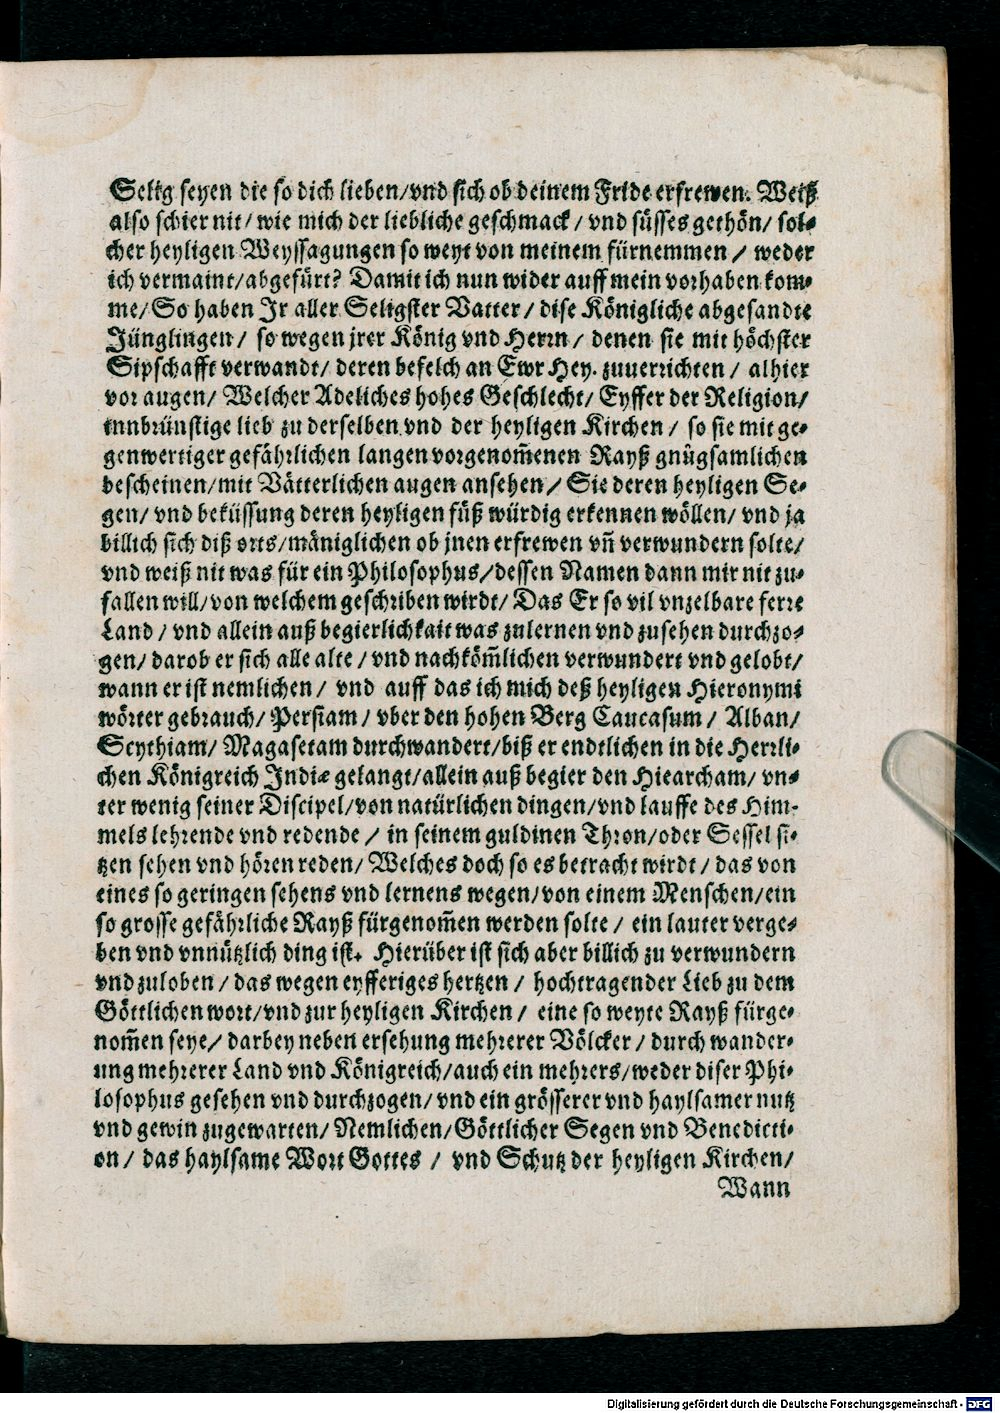 Selig seyen die so dich lieben/vnd sich ob deinem Fride erfrewen. Weiß
also schier nit/ wie mich der liebliche geschmack/ vnd süsses gethön/ sol-
cher heyligen Weyssagungen so weyt von meinem fürnemmen/ weder
ich vermaint/abgefürt? Damit ich nun wider auff mein vorhaben kom-
me/ So haben Ir aller Seligster Vatter/ dise Königliche abgesandte
Jünglingen/ so wegen jrer König vnd Herrn/ denen sie mit höchster
Sipschafft verwandt/ deren befelch an Ewr Hey. zuuerrichten/ alhier
vor augen/ Welcher Adeliches hohes Geschlecht/ Eyffer der Religion/
innbrünstige lieb zu derselben vnd der heyligen Kirchen/ so sie mit ge-
genwertiger gefährlichen langen vorgenom̃enen Rayß gnůgsamlichen
bescheinen/mit Vätterlichen augen ansehen/ Sie deren heyligen Se-
gen/ vnd beküssung deren heyligen füß würdig erkennen wöllen/ vnd ja
billich sich diß orts/mäniglichen ob jnen erfrewen vn̄ verwundern solte/
vnd weiß nit was für ein Philosophus/dessen Namen dann mir nit zu-
fallen will/von welchem geschriben wirdt/ Das Er so vil vnzelbare ferre
Land/ vnd allein auß begierlichkait was zulernen vnd zusehen durchzo-
gen/ darob er sich alle alte/ vnd nachköm̃lichen verwundert vnd gelobt/
wann er ist nemlichen/ vnd auff das ich mich deß heyligen Hieronymi
wörter gebrauch/ Persiam/ vber den hohen Berg Caucasum/ Alban/
Scythiam/ Magasetam durchwandert/biß er endtlichen in die Herrli-
chen Königreich Indiæ gelangt/allein auß begier den Hiearcham/ vn-
ter wenig seiner Discipel/von natürlichen dingen/vnd lauffe des Him-
mels lehrende vnd redende/ in seinem guldinen Thron/oder Sessel si-
tzen sehen vnd hören reden/ Welches doch so es betracht wirdt/ das von
eines so geringen sehens vnd lernens wegen/von einem Menschen/ein
so grosse gefährliche Rayß fürgenom̃en werden solte/ ein lauter verge-
ben vnd vnnützlich ding ist. Hierüber ist sich aber billich zu verwundern
vnd zuloben/ das wegen eyfferiges hertzen/ hochtragender Lieb zu dem
Göttlichen wort/vnd zur heyligen Kirchen/ eine so weyte Rayß fürge-
nom̃en seye/ darbey neben ersehung mehrerer Völcker/ durch wander-
ung mehrerer Land vnd Königreich/auch ein mehrers/weder diser Phi-
losophus gesehen vnd durchzogen/vnd ein grösserer vnd haylsamer nutz
vnd gewin zugewarten/ Nemlichen/ Göttlicher Segen vnd Benedicti-
on/ das haylsame Wort Gottes/ vnd Schutz der heyligen Kirchen/
Wann
Digitalisierung gefördert durch die Deutsche Forschungsgemeinschaft - DFG